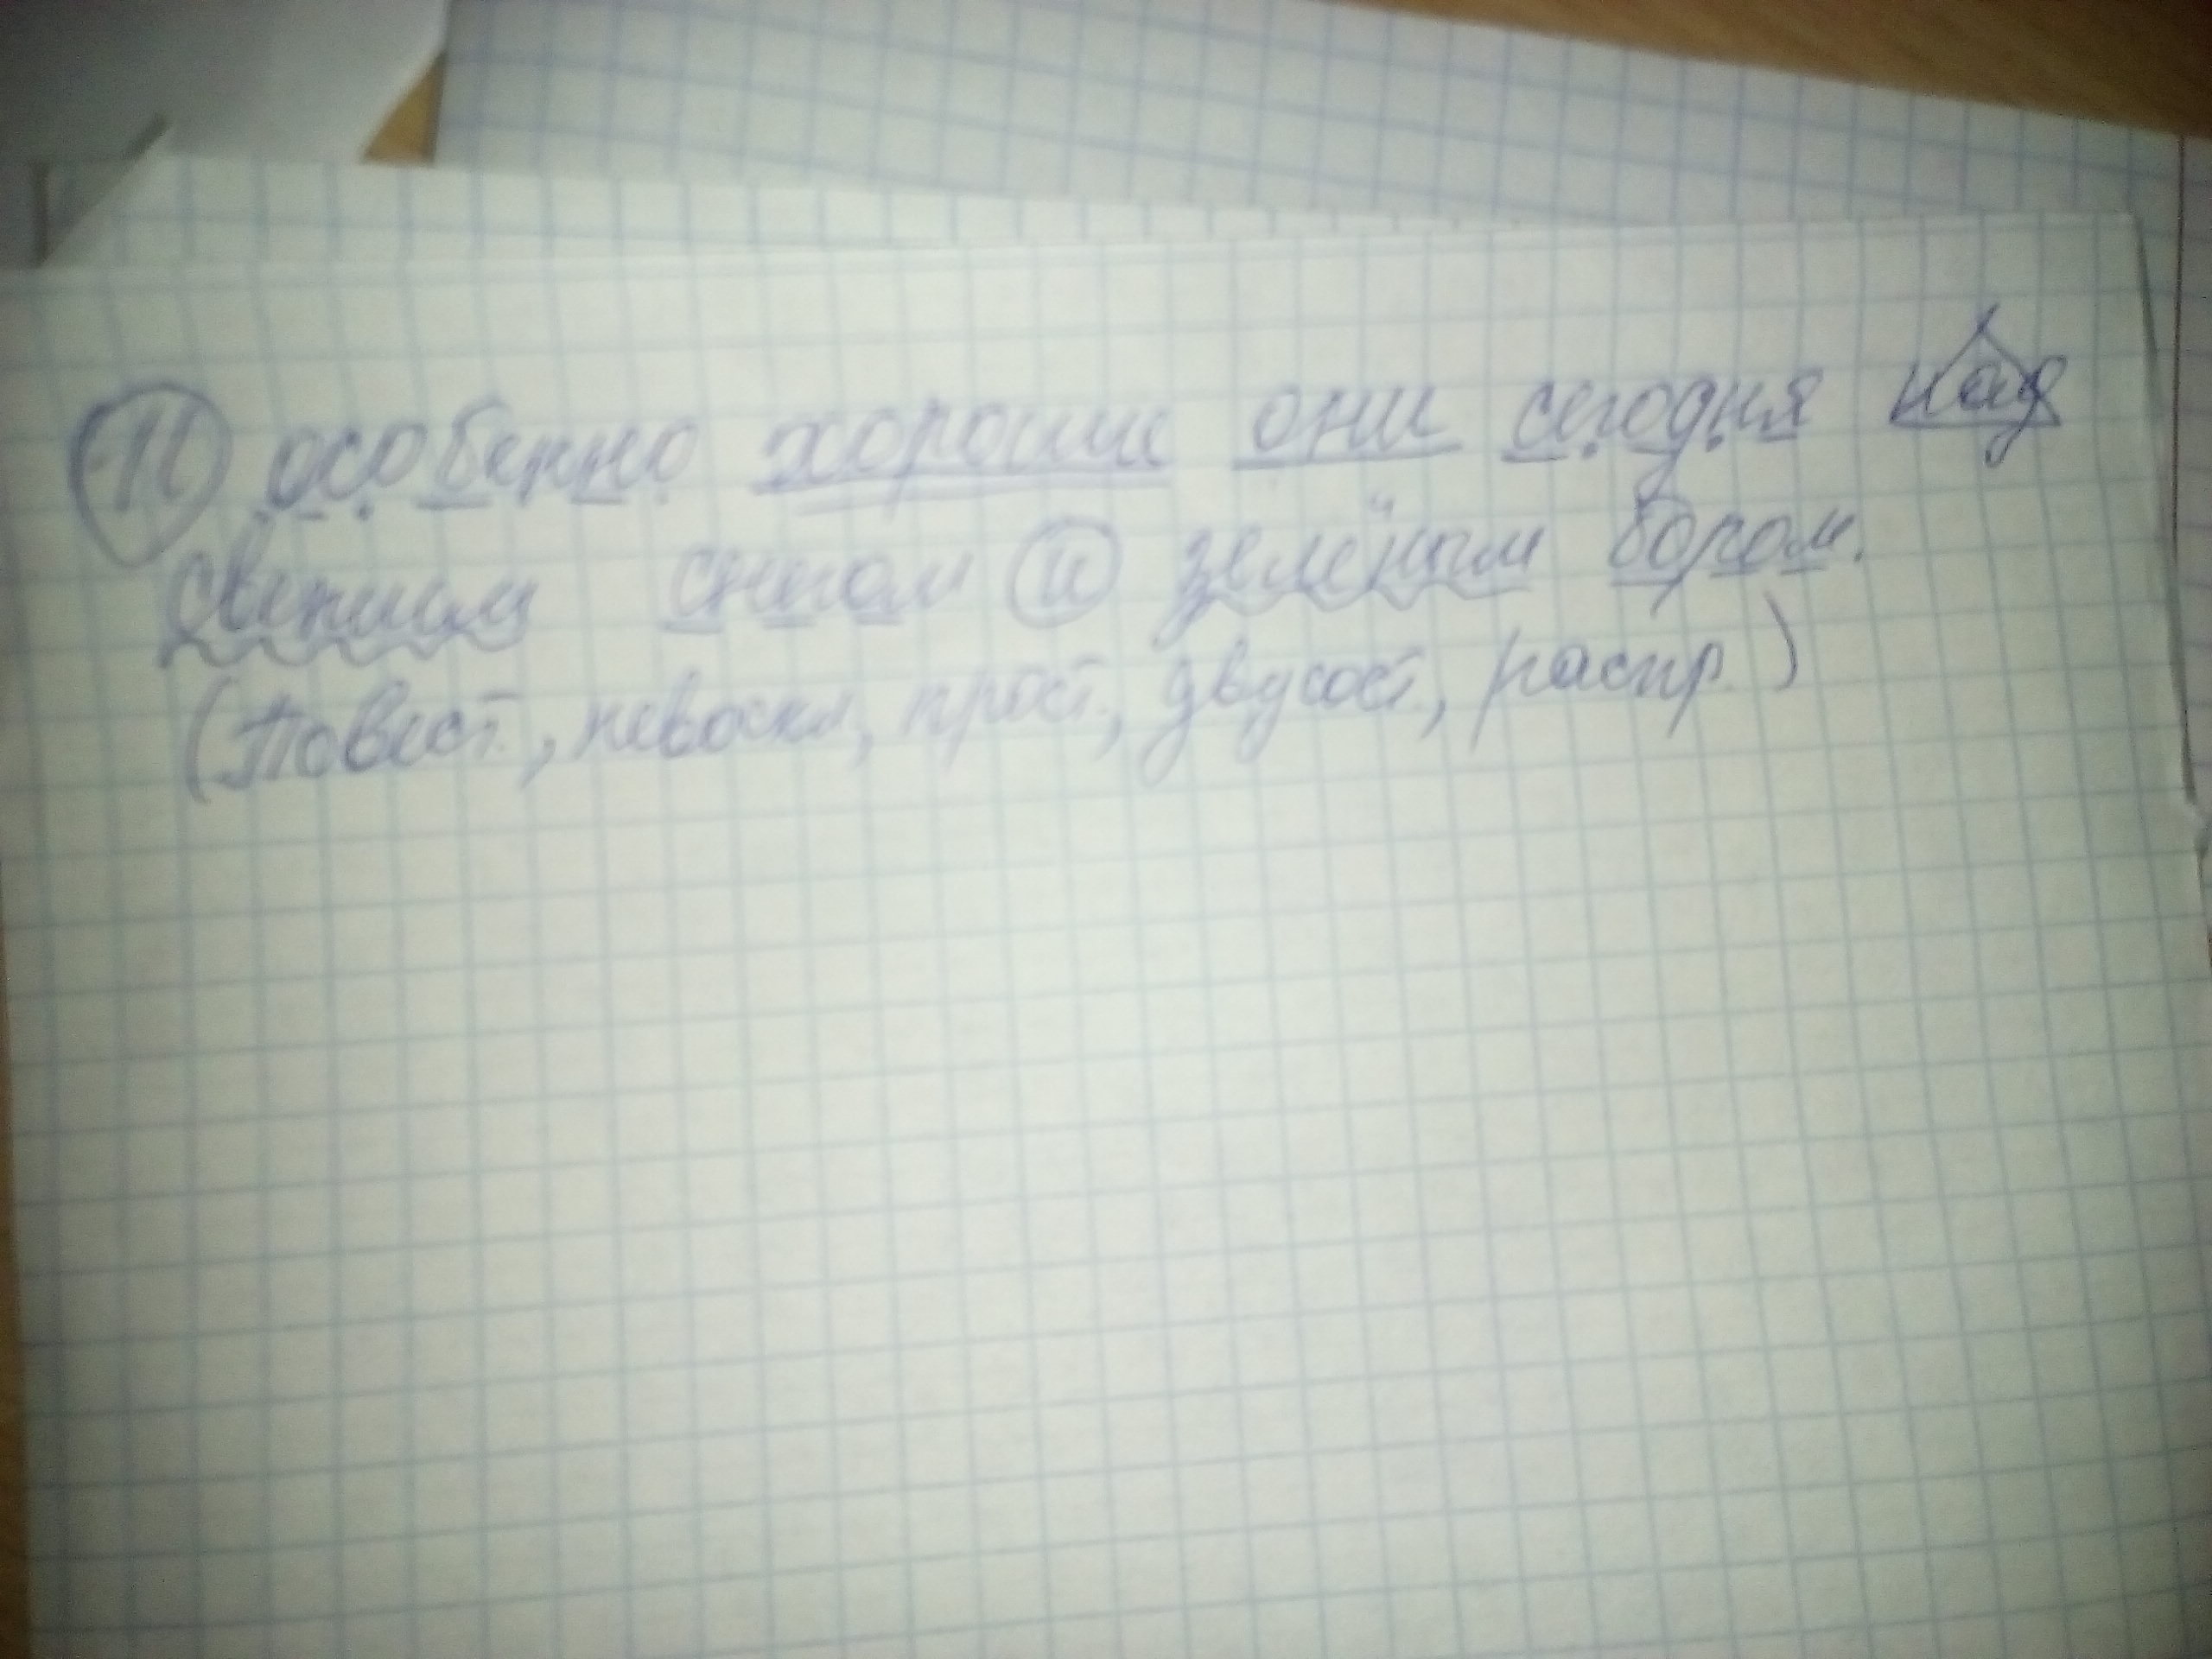 И особенно хороши они сегодня над
свежим снегом и зелёным бором.
(Повест., невоскл., прост., двусост., распр.)